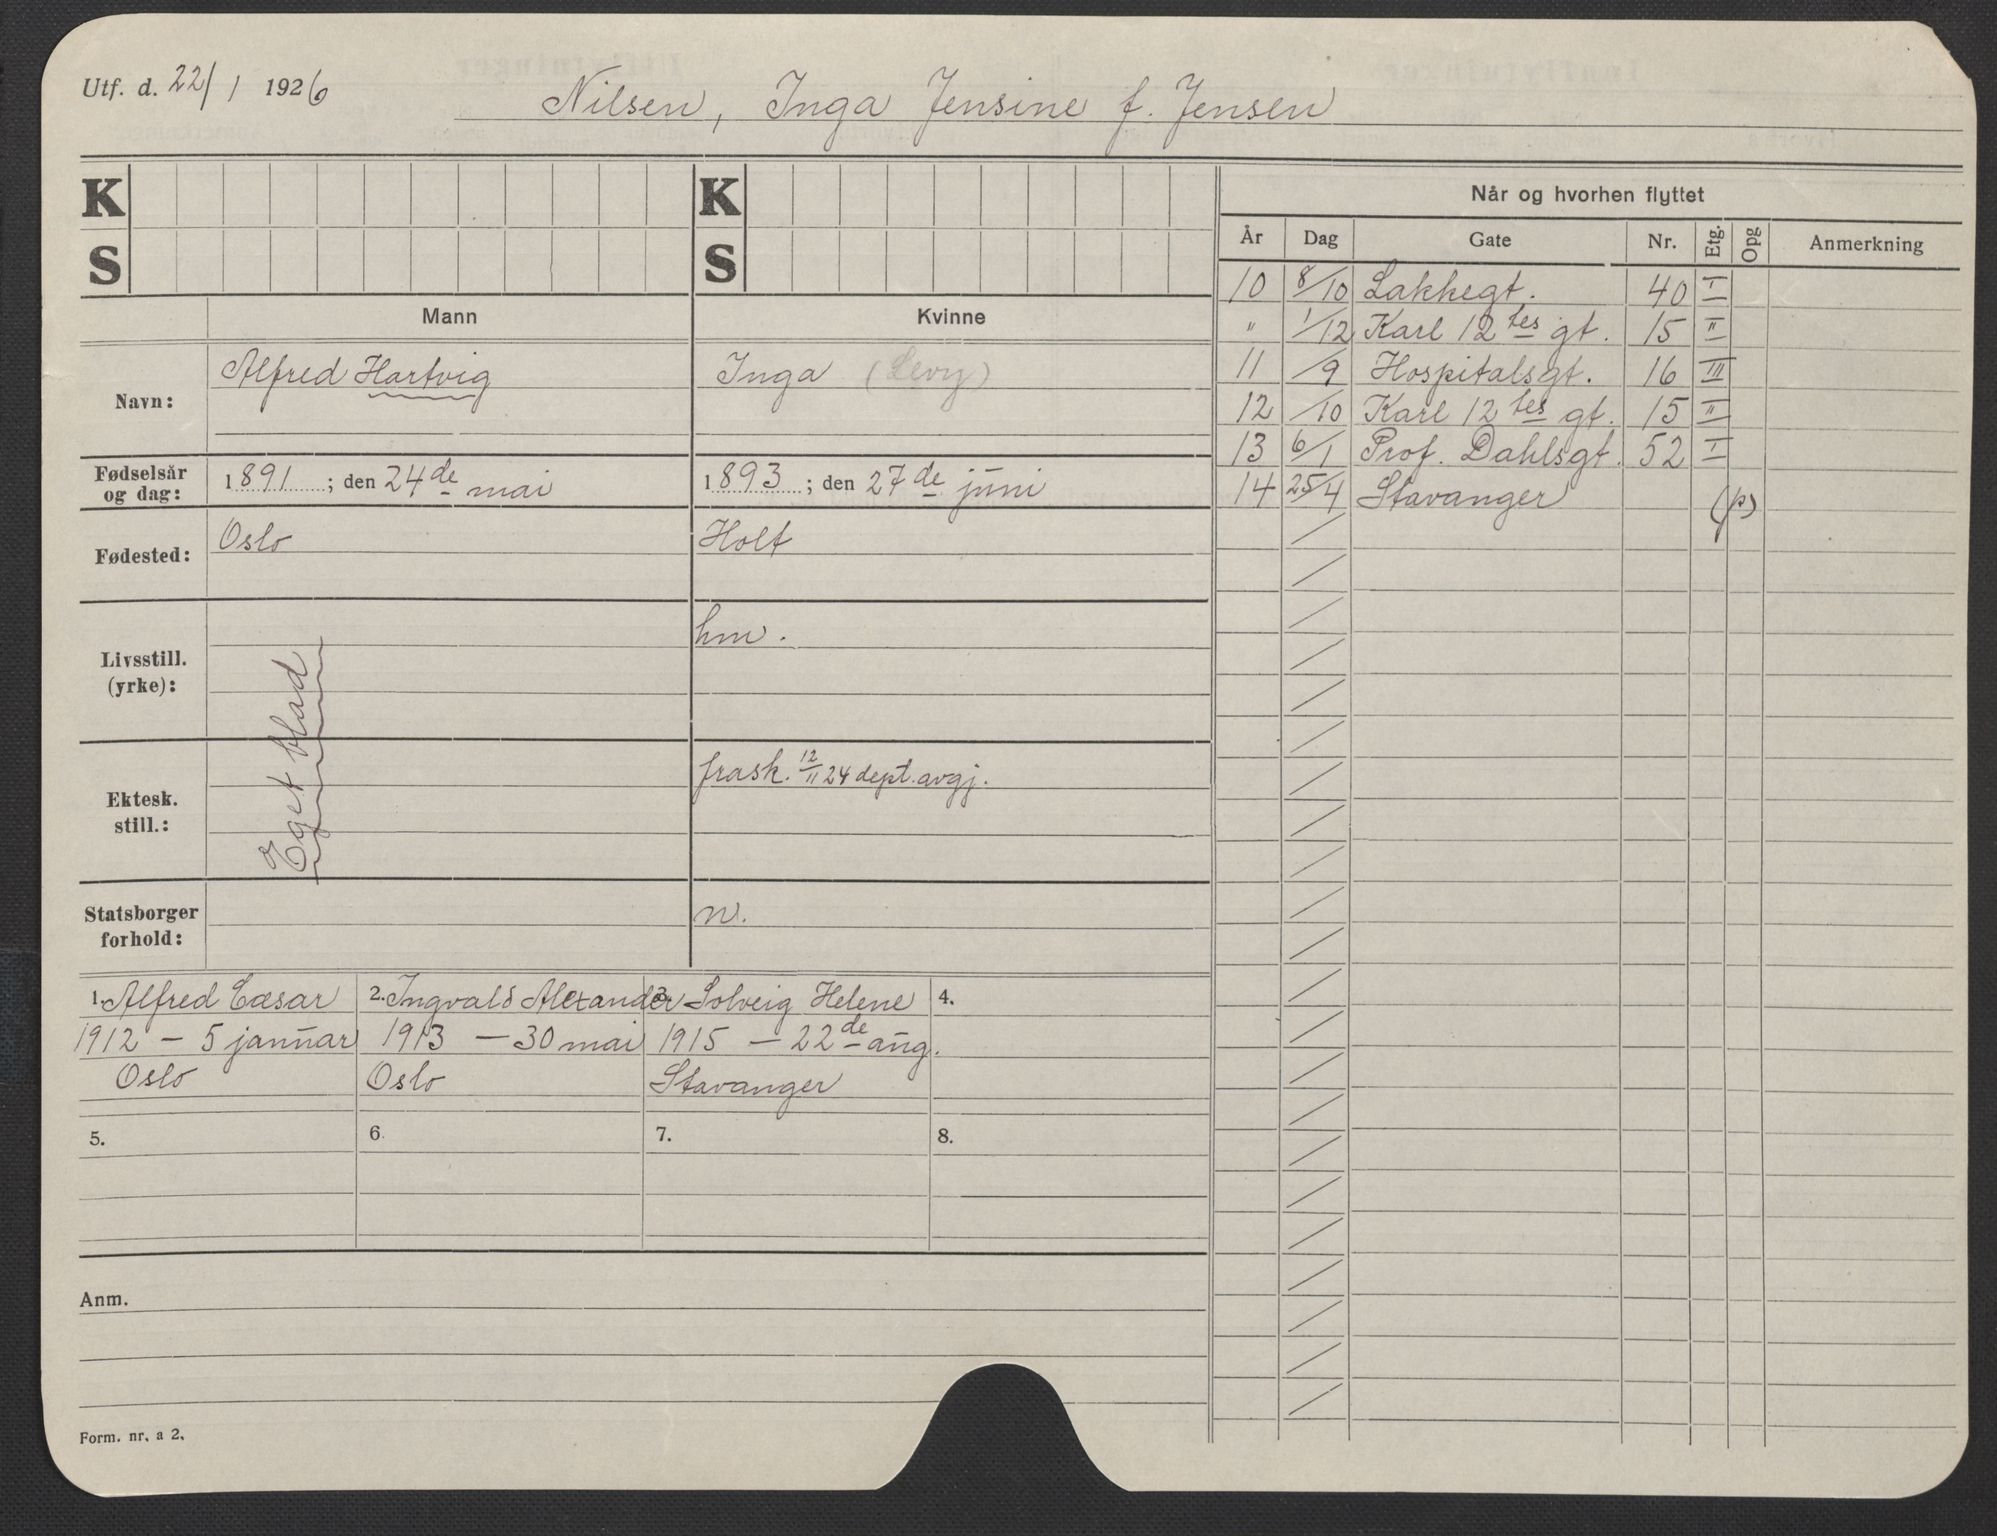 Utf. d. 22/1 1926
Nilsen, Inga Jensine f. Jensen
K
S
K
S
Mann
Kvinne
Navn:
Alfred Hartvig
Inga (Levy)
Fødselsår
og dag:
1891; den 24de mai
1893; den 27de juni
Fødested:
Oslo
Holt
Livsstill.
(yrke):
hm.
Eget blad
Ektesk.
still.:
frask. 12/11 24 dept. avgj.
Statsborger
forhold:
n.
1. Alfred Cæsar
1912 – 5 januar
Oslo
2. Ingvald Alexander
1913 – 30 mai
Oslo
3. Solveig Helene
1915 – 22de aug.
Stavanger
4.
5.
6.
7.
8.
Anm.
Form. nr. a 2.
Når og hvorhen flyttet
År Dag Gate Nr. Etg. Opg Anmerkning
10 8/10 Lakkegt. 40 I
" 1/12 Karl 12tes gt. 15 II
11 /9 Hospitalsgt. 16 III
12 /10 Karl 12tes gt. 15 II
13 6/1 Prof. Dahlsgt. 52 I
14 25/4 Stavanger (p)